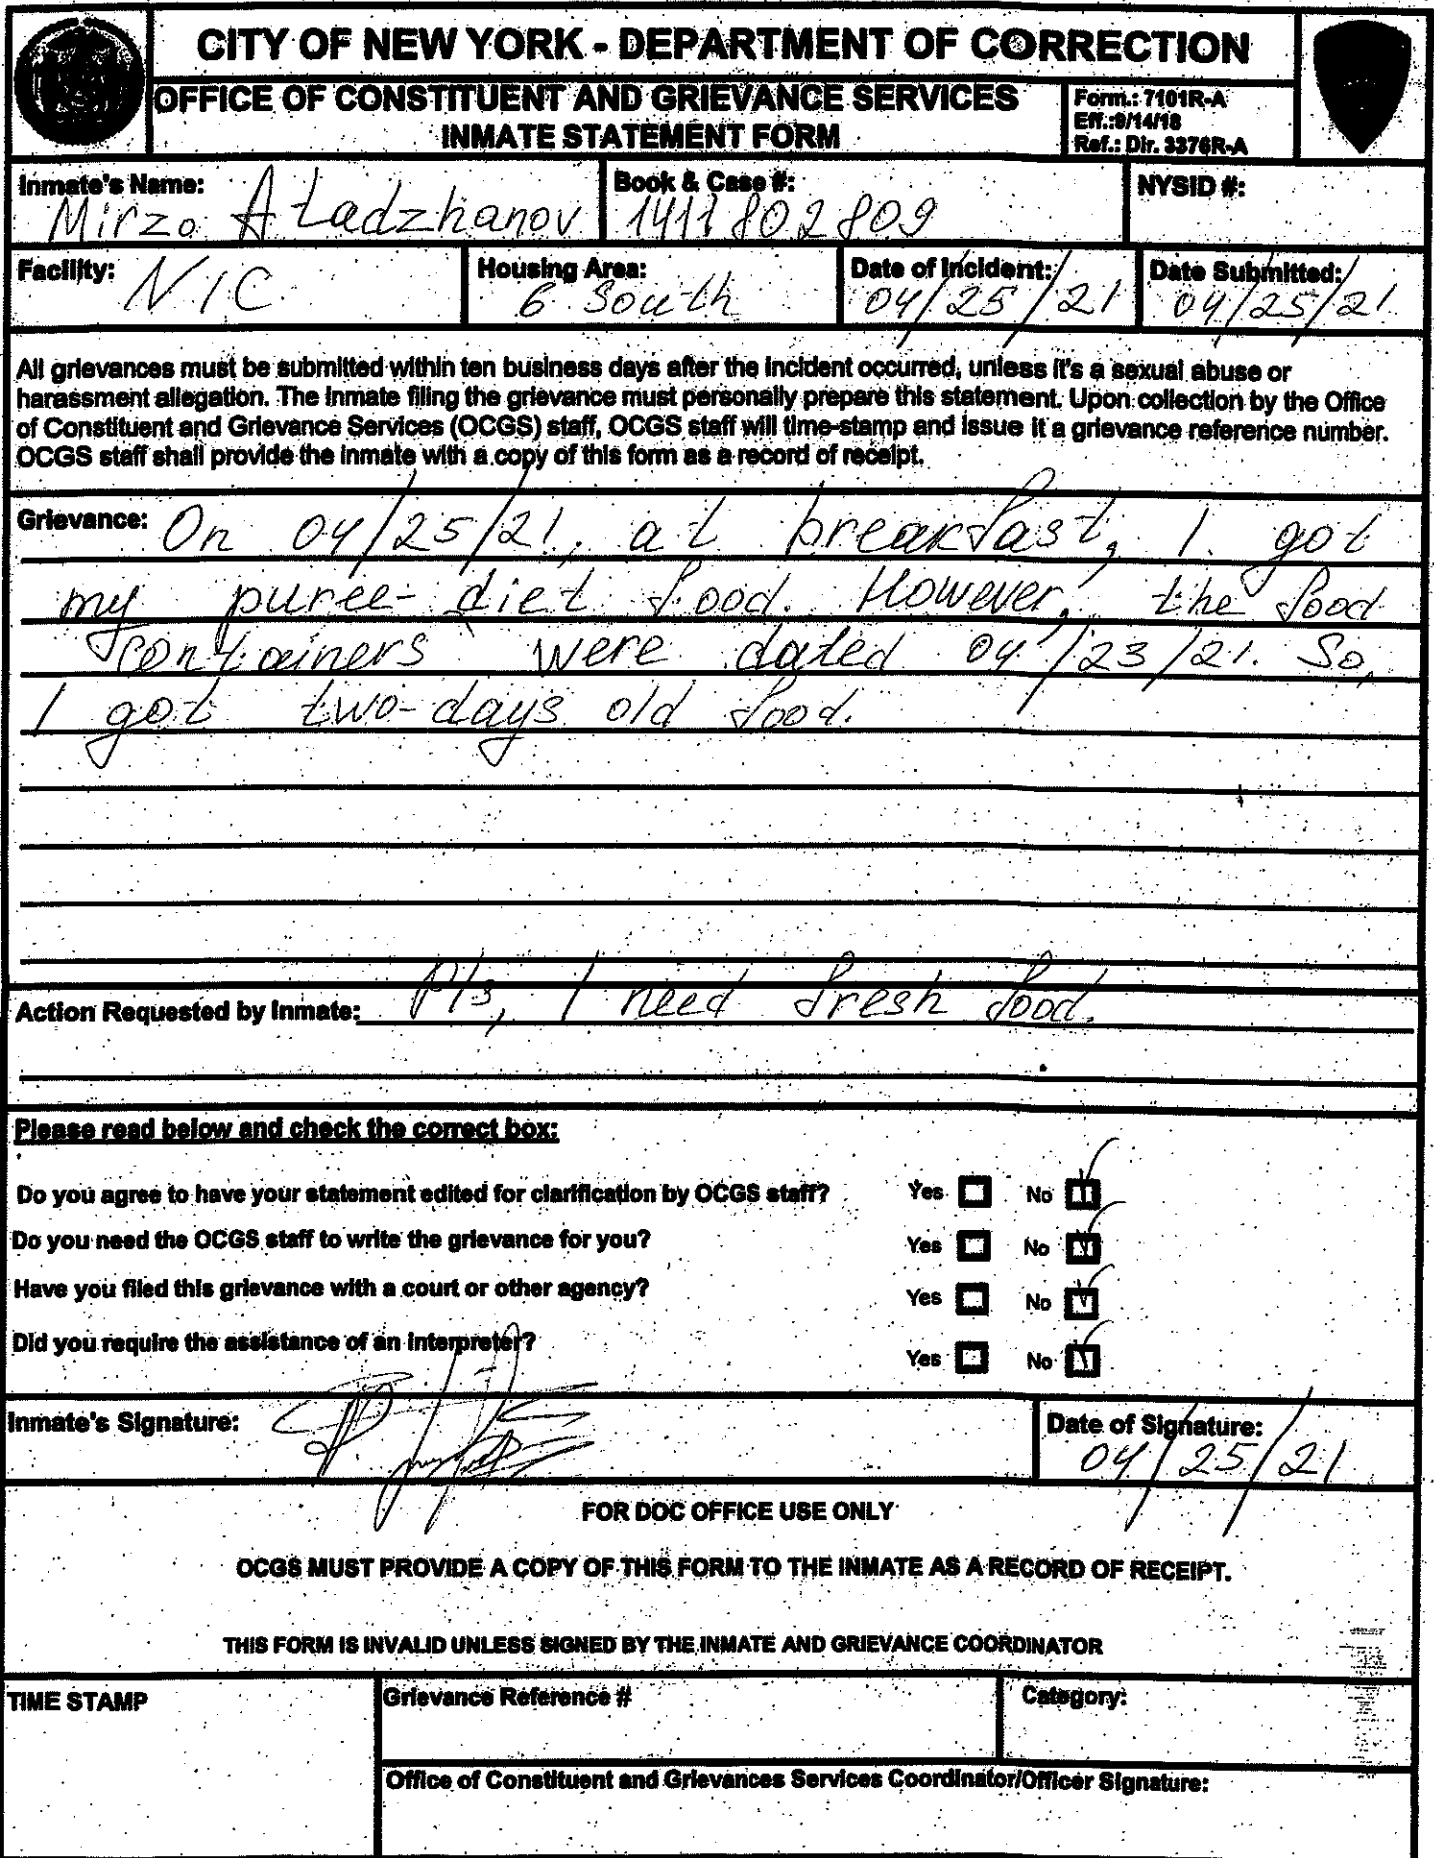 CITY OF NEW YORK - DEPARTMENT OF CORRECTION
OFFICE OF CONSTITUENT AND GRIEVANCE SERVICES
INMATE STATEMENT FORM
Form.: 7101R-A
Eff.:9/14/18
Ref.: Dir. 3376R-A
Inmate's Name: Mirzo Atadzhanov
Book & Case #: 1411802809
NYSID #:
Facility: NIC
Housing Area: 6 South
Date of Incident: 04/25/21
Date Submitted: 04/25/21
All grievances must be submitted within ten business days after the incident occurred, unless it's a sexual abuse or
harassment allegation. The inmate filing the grievance must personally prepare this statement. Upon collection by the Office
of Constituent and Grievance Services (OCGS) staff, OCGS staff will time-stamp and issue it a grievance reference number.
OCGS staff shall provide the inmate with a copy of this form as a record of receipt.
Grievance: On 04/25/21, at breakfast, I got
my puree-diet food. However, the food
containers were dated 04/23/21. So,
I got two-days old food.
Action Requested by Inmate: Pls, I need fresh food.
Please read below and check the correct box:
Do you agree to have your statement edited for clarification by OCGS staff? Yes No
Do you need the OCGS staff to write the grievance for you? Yes No
Have you filed this grievance with a court or other agency? Yes No
Did you require the assistance of an interpreter? Yes No
Inmate's Signature:
Date of Signature: 04/25/21
FOR DOC OFFICE USE ONLY
OCGS MUST PROVIDE A COPY OF THIS FORM TO THE INMATE AS A RECORD OF RECEIPT.
THIS FORM IS INVALID UNLESS SIGNED BY THE INMATE AND GRIEVANCE COORDINATOR
TIME STAMP
Grievance Reference #
Category:
Office of Constituent and Grievances Services Coordinator/Officer Signature: